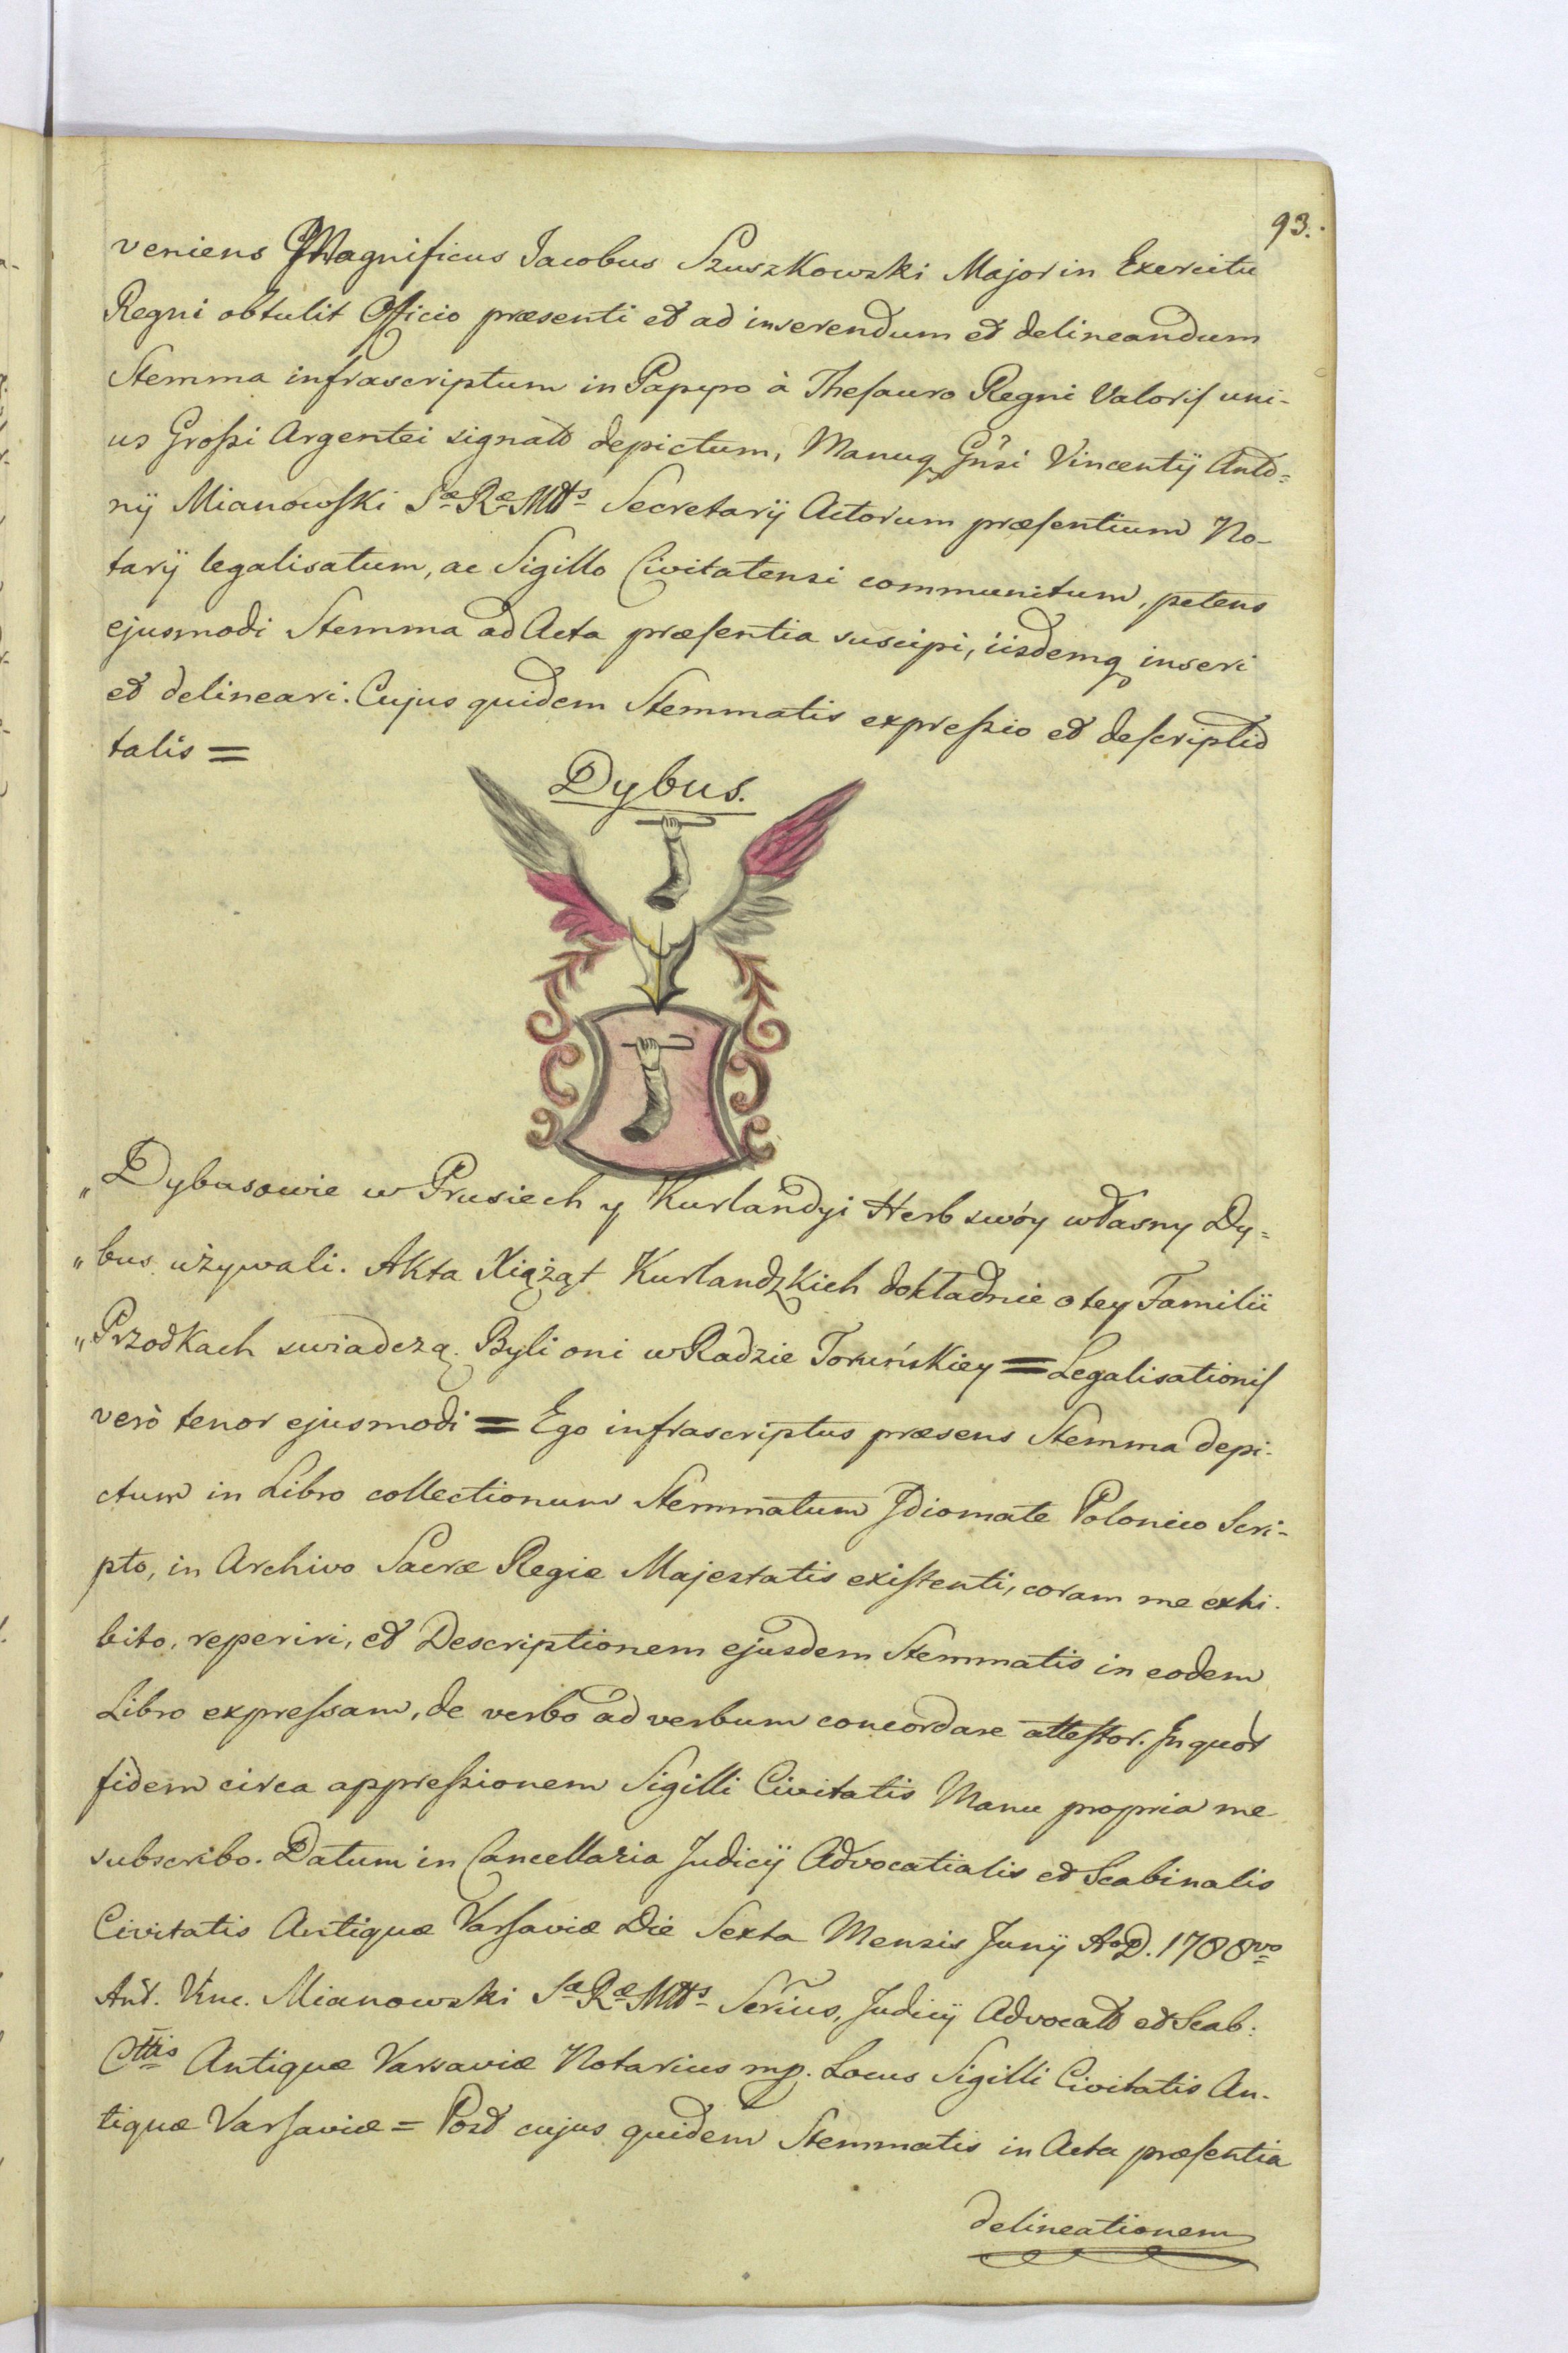 93.
veniens Magnificus Jacobus Szuszkowski Major in Exercitu
Regni obtulit Officio præsenti et ad inserendum et delineandum
Stemma infrascriptum in Papyro à Thesauro Regni Valoris uni-
us Grossi Argentei signato depictum, Manuq Gñsi Vincentij Anto=
nij Mianowski Sæ Ræ Mtts Secretarij Actorum præsentium No-
tarij legalisatum, ac Sigillo Civitatensi communitum, petens
ejusmodi Stemma ad Acta præsentia suscipi, iisdemq inseri
et delineari. Cujus quidem Stemmatis expressio et descriptio
talis =
Dybus.
„Dybusowie w Prusiech y Kurlandyi Herb swóy własny Dy=
„bus używali. Akta Xiążąt Kurlandzkich dokładnie o tey Familii
„Przodkach swiadczą. Byli oni w Radzie Toruńskiey = Legalisationis
verò tenor ejusmodi = Ego infrascriptus præsens Stemma depi-
ctum in Libro collectionum Stemmatum Jdiomate Polonico Scri-
pto, in Archivo Sacræ Regiæ Majestatis existenti, coram me exhi-
bito, reperiri, et Descriptionem ejusdem Stemmatis in eodem
Libro expressam, de verbo ad verbum concordare attestor. In quor
fidem circa appressionem Sigilli Civitatis Manu propria me
subscribo. Datum in Cancellaria Judicij Advocatialis et Scabinalis
Civitatis Antiquæ Varsaviæ Die Sexta Mensis Junij A. D. 1788vo
Ant. Vinc. Mianowski Sæ Ræ Mtts Serius, Judicij Advocatt et Scab:
Cttis Antiquæ Varsaviæ Notarius mp. Locus Sigilli Civitatis An-
tiquæ Varsaviæ = Post cujus quidem Stemmatis in Acta præsentia
delineationem